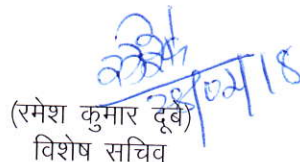 28/02/18
(रमेश कुमार दूबे)
विशेष सचिव